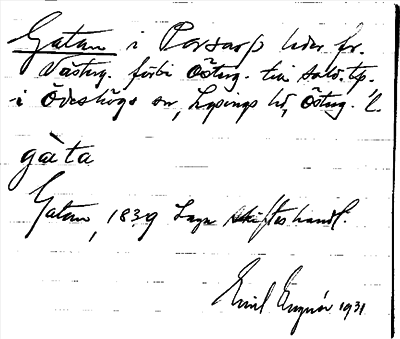 Gatan i Porsarp leder fr.
Västerg. förbi Österg. till sold.tp.
i Ödeshögs sn, Lysings hd, Österg. l.
gàta
Gatan, 1839 Laga skifteshandl.
Emil 1931